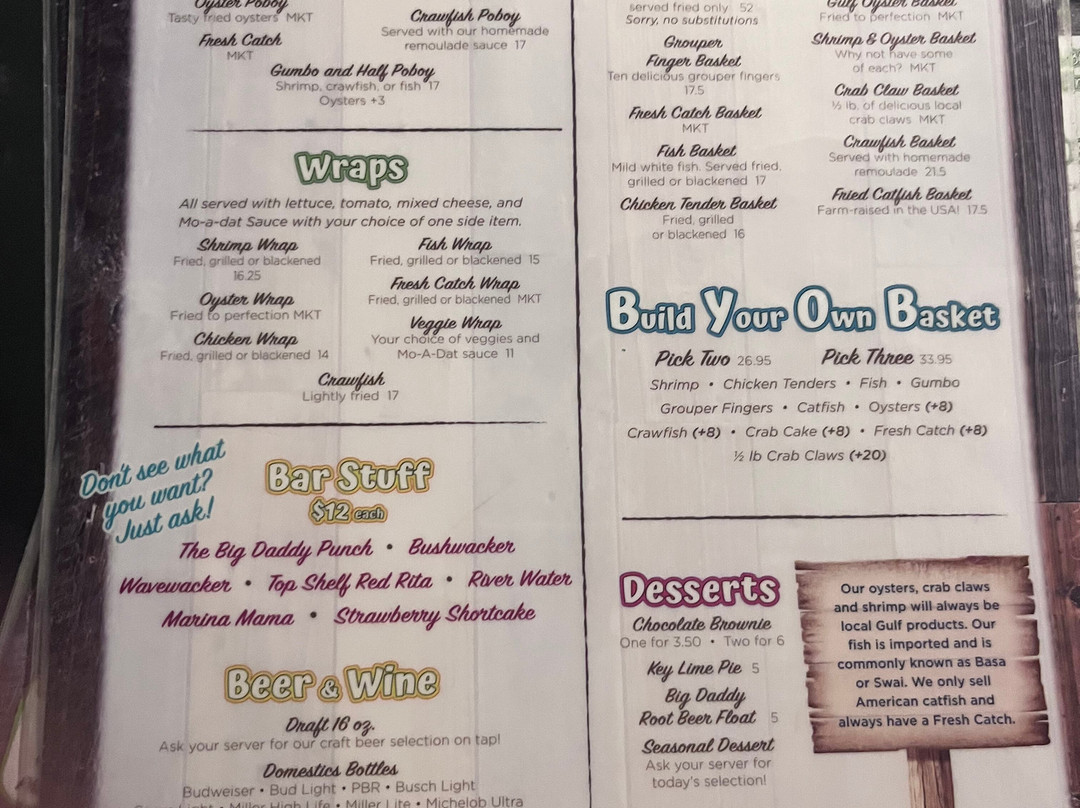 Oyster Poboy
Tasty fried oysters MKT
Fresh Catch
MKT
Crawfish Poboy
Served with our homemade
remoulade sauce 17
Gumbo and Half Poboy
Shrimp, crawfish, or fish 17
Oysters +3
Wraps
All served with lettuce, tomato, mixed cheese, and
Mo-a-dat Sauce with your choice of one side item.
Shrimp Wrap
Fried, grilled or blackened
16.25
Oyster Wrap
Fried to perfection MKT
Chicken Wrap
Fried, grilled or blackened 14
Fish Wrap
Fried, grilled or blackened 15
Fresh Catch Wrap
Fried, grilled or blackened MKT
Veggie Wrap
Your choice of veggies and
Mo-A-Dat sauce 11
Crawfish
Lightly fried 17
Don't see what
you want?
Just ask!
Bar Stuff
$12 each
The Big Daddy Punch • Bushwacker
Wavewacker • Top Shelf Red Rita • River Water
Marina Mama • Strawberry Shortcake
Beer & Wine
Draft 16 oz.
Ask your server for our craft beer selection on tap!
Domestics Bottles
Budweiser • Bud Light • PBR • Busch Light
Light • Miller High Life • Miller Lite • Michelob Ultra
served fried only 52
Sorry, no substitutions
Grouper
Finger Basket
Ten delicious grouper fingers
17.5
Fresh Catch Basket
MKT
Fish Basket
Mild white fish. Served fried,
grilled or blackened 17
Chicken Tender Basket
Fried, grilled
or blackened 16
Gulf Oyster Basket
Fried to perfection MKT
Shrimp & Oyster Basket
Why not have some
of each? MKT
Crab Claw Basket
½ lb. of delicious local
crab claws MKT
Crawfish Basket
Served with homemade
remoulade 21.5
Fried Catfish Basket
Farm-raised in the USA! 17.5
Build Your Own Basket
Pick Two 26.95 Pick Three 33.95
Shrimp • Chicken Tenders • Fish • Gumbo
Grouper Fingers • Catfish • Oysters (+8)
Crawfish (+8) • Crab Cake (+8) • Fresh Catch (+8)
½ lb Crab Claws (+20)
Desserts
Chocolate Brownie
One for 3.50 • Two for 6
Key Lime Pie 5
Big Daddy
Root Beer Float 5
Seasonal Dessert
Ask your server for
today's selection!
Our oysters, crab claws
and shrimp will always be
local Gulf products. Our
fish is imported and is
commonly known as Basa
or Swai. We only sell
American catfish and
always have a Fresh Catch.